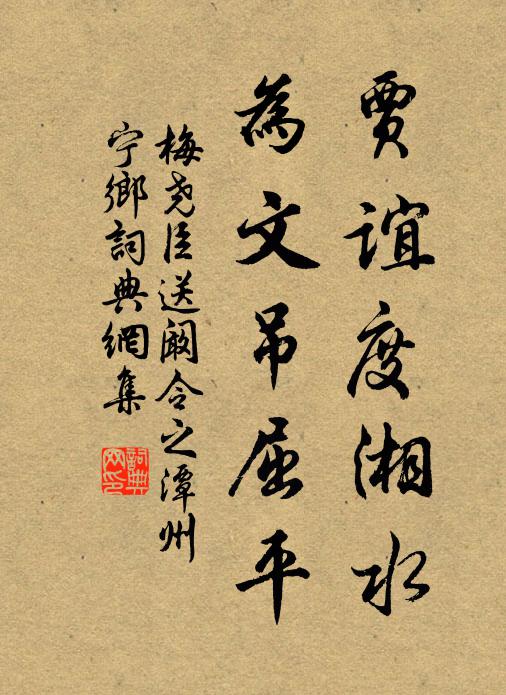 賈誼度湘水
為文吊屈平
梅堯臣送阚令之潭州
宁鄉詞典網集
詞典
网印